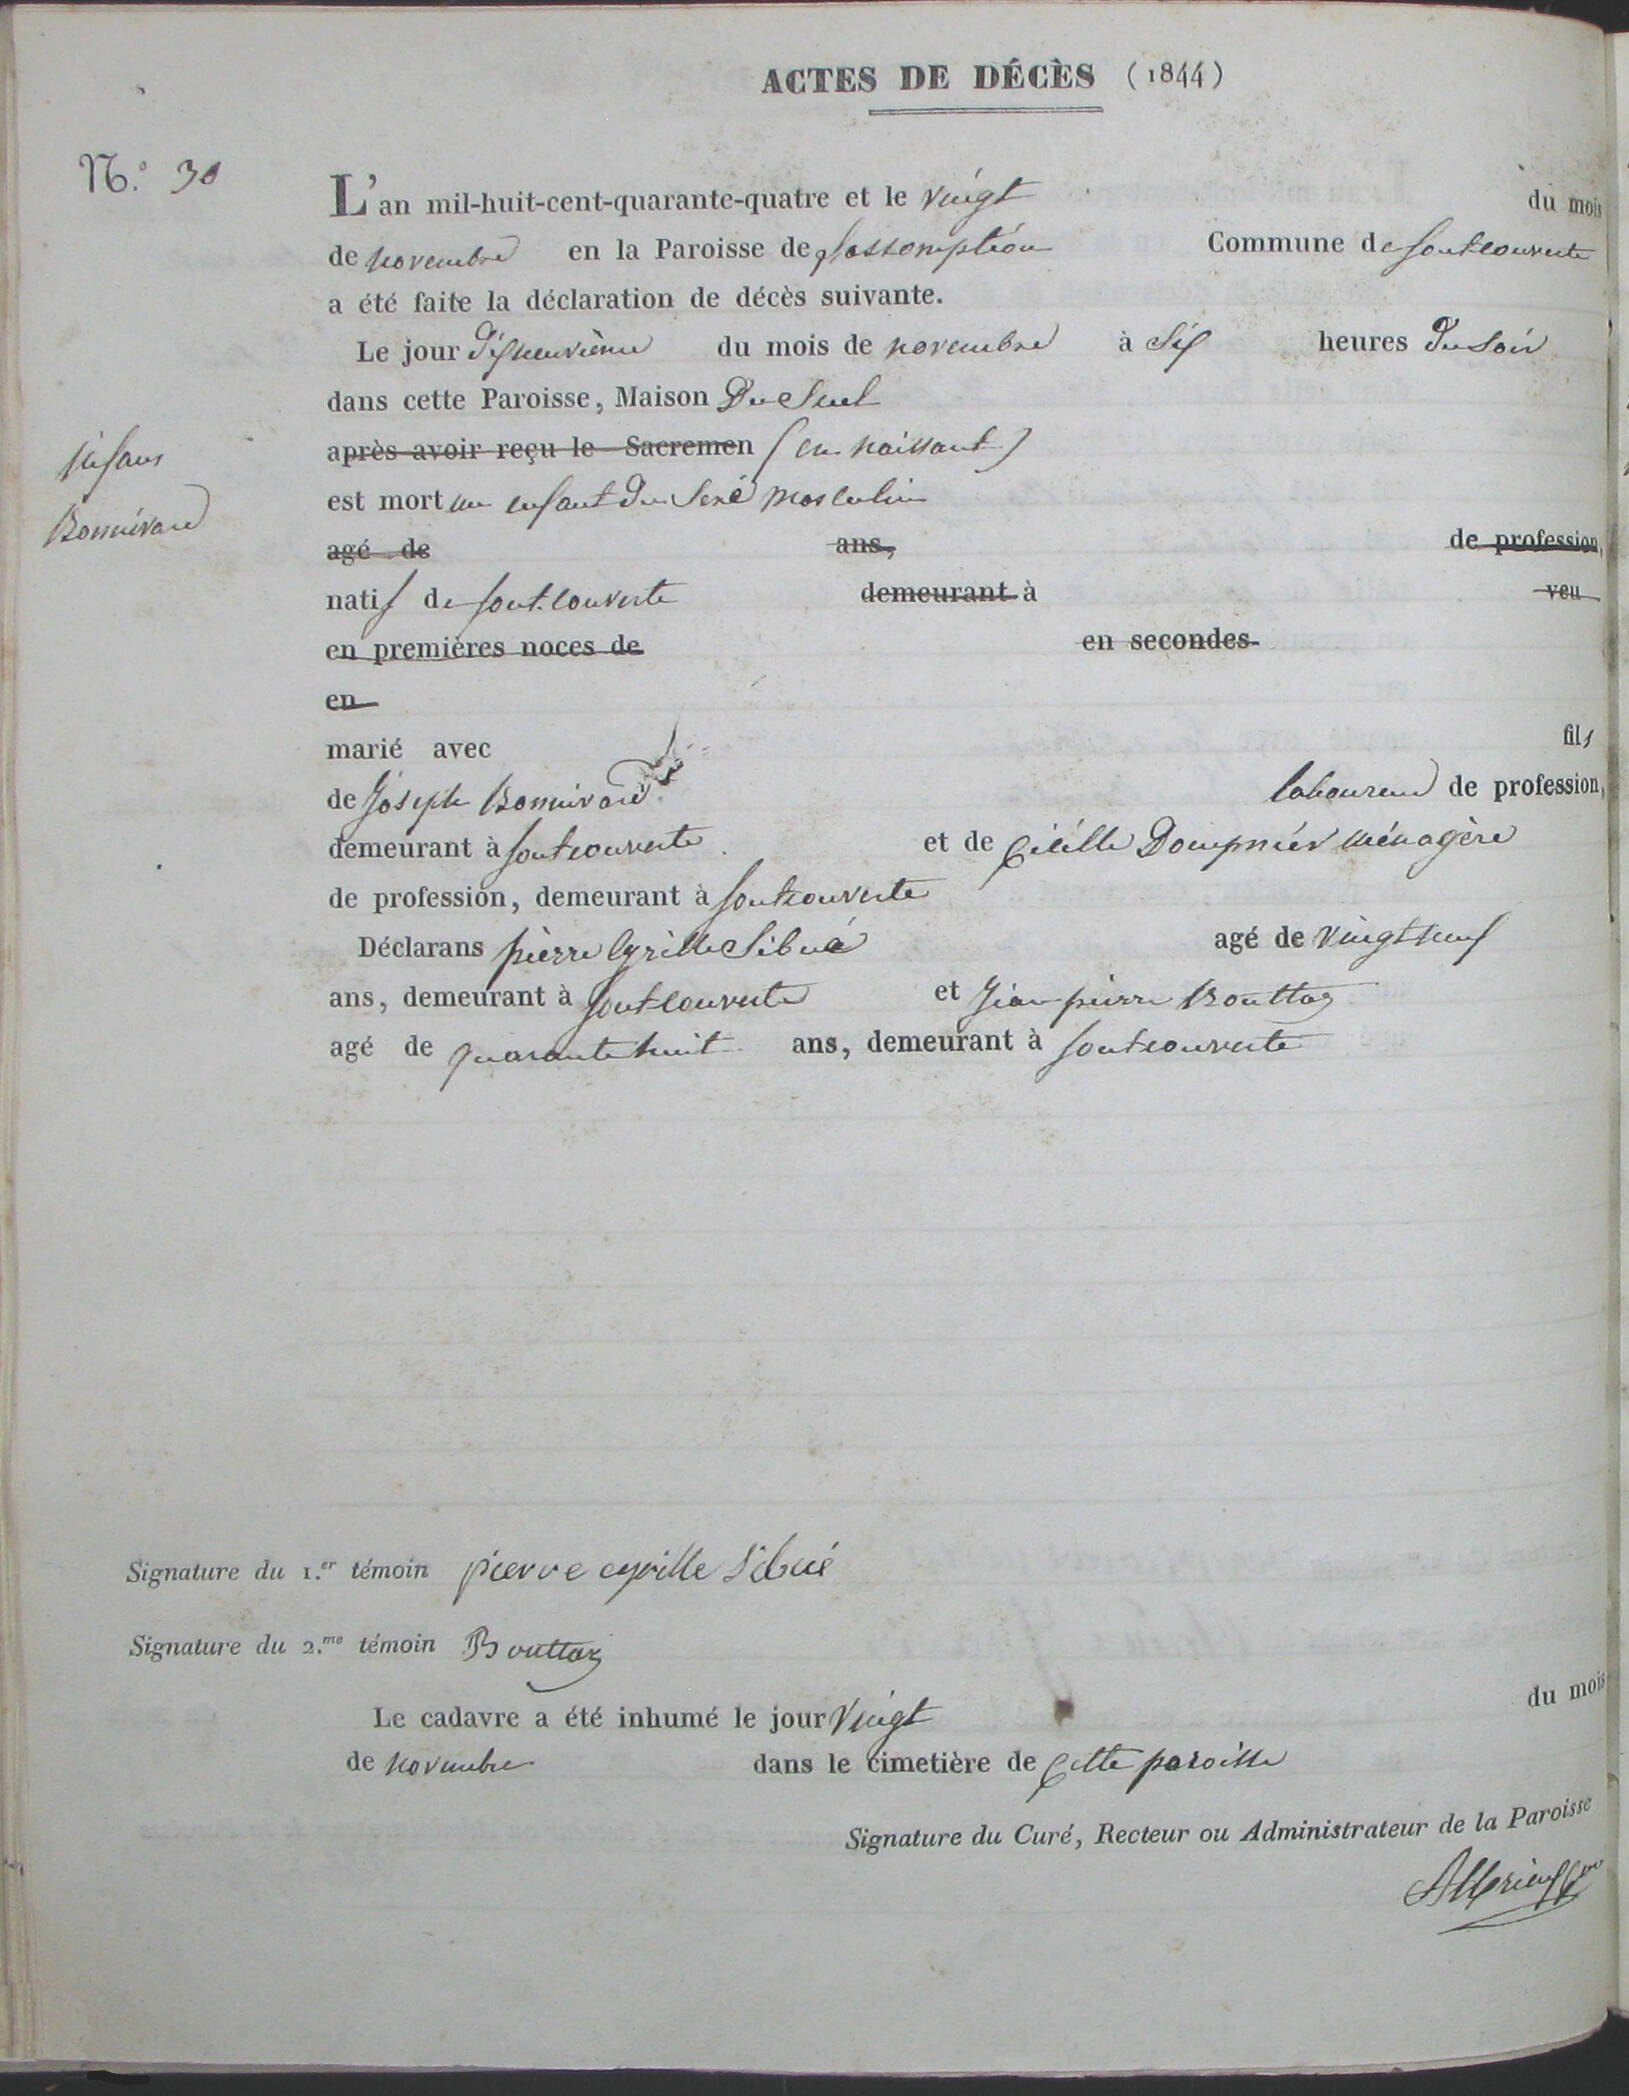 ACTES DE DÉCÈS (1844)
N.o 30
L'an mil-huit-cent-quarante-quatre et le vingt du mois
de novembre en la Paroisse de l'assomption Commune de fontcouverte
a été faite la déclaration de décès suivante.
Le jour dixneuvième du mois de novembre à six heures du soir
dans cette Paroisse, Maison Du Suel
après avoir reçu le Sacremen (en naissant)
infans
Bonnivard
est mort un enfant du sexe masculin
agé de ans, de profession,
natif de fontcouverte demeurant à veu
en premières noces de en secondes
en
marié avec fils
de Joseph Bonnivard laboureur de profession,
demeurant à fontcouverte et de Cécille Dompnier ménagère
de profession, demeurant à fontcouverte
Déclarans pierre Cyrille Sibué agé de vingt neuf
ans, demeurant à fontcouverte et Jean pierre Bouttaz
agé de quarante huit ans, demeurant à fontcouverte
Signature du 1.er témoin pierre cyrille Sibué
Signature du 2.me témoin Bouttaz
Le cadavre a été inhumé le jour vingt du mois
de novembre dans le cimetière de cette paroisse
Signature du Curé, Recteur ou Administrateur de la Paroisse